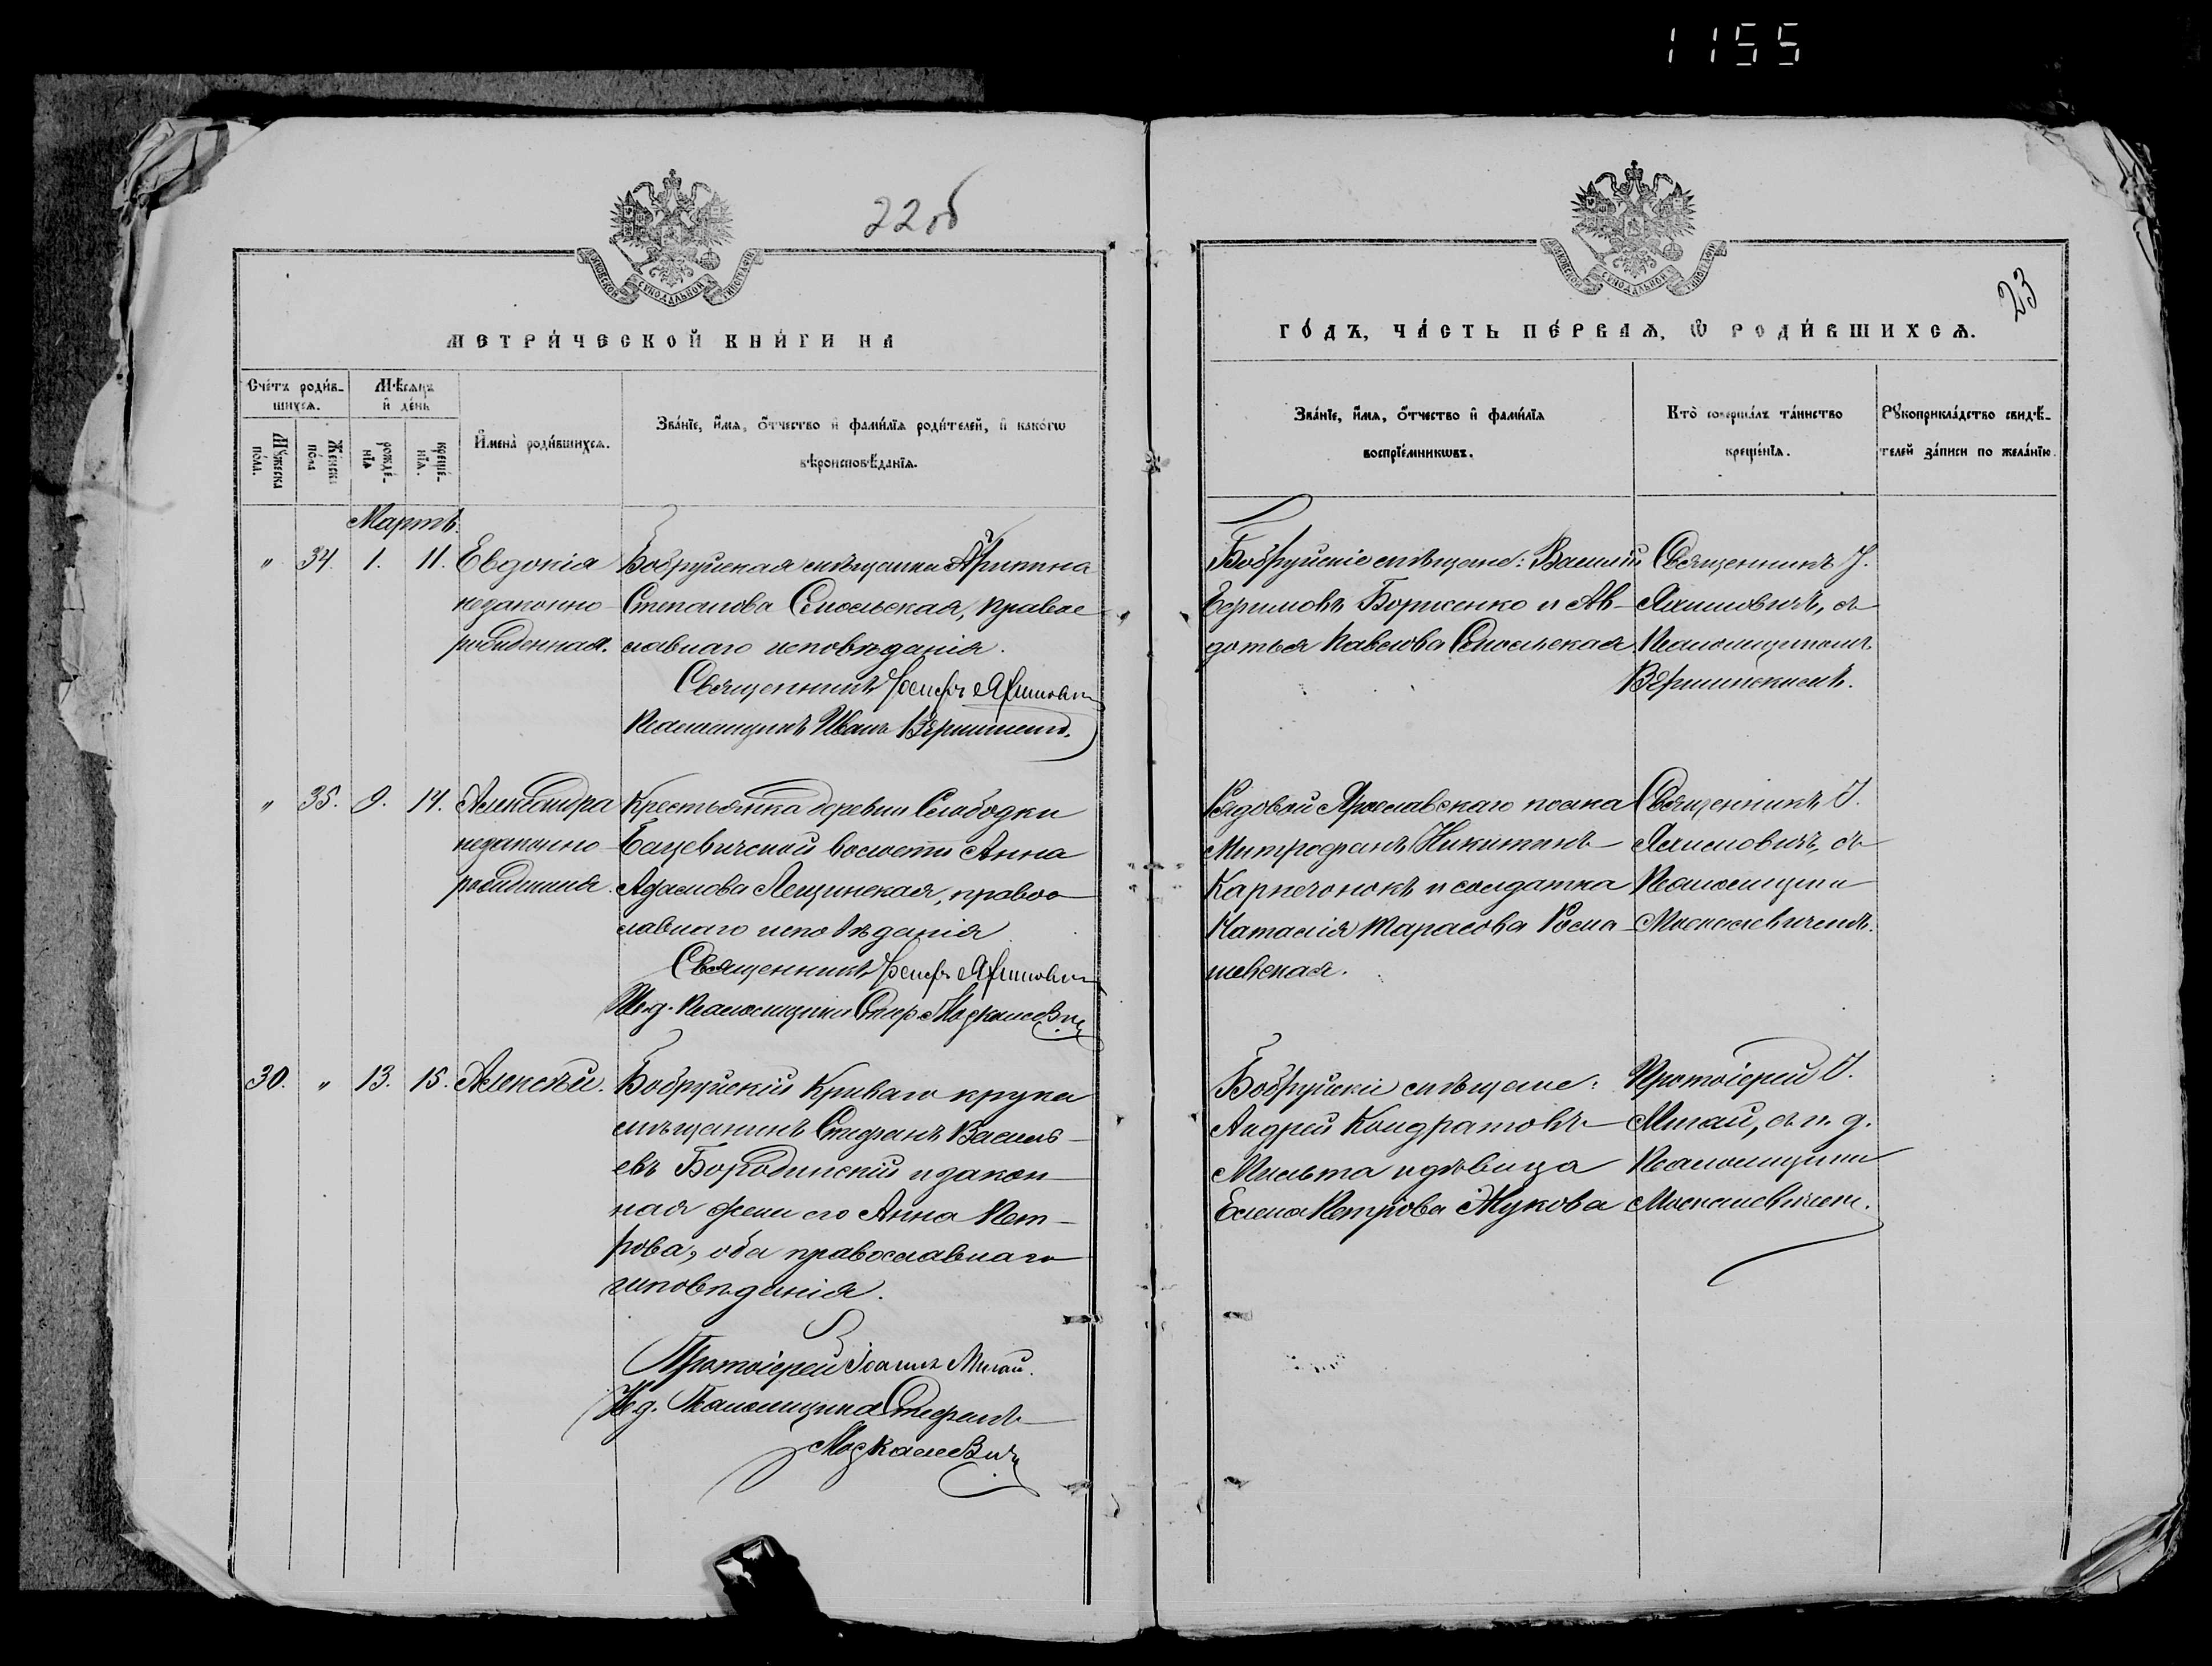 1155
22об
23
МОСКОВСКОЙ СѴНОДАЛЬНОЙ ТИПОГРАФІИ
МЕТРИ́ЧЕСКОЙ КНИ́ГИ НА
Сче́тъ роди́в-
шихсѧ.
Мѣсѧцъ
и҆ де́нь
Мꙋ́жеска
по́ла.
Же́нска
по́ла
рожде́-
нїѧ
креще́-
нїѧ.
И҆мена̀ роди́вшихсѧ.
Зва́нїе, и҆́мѧ, ѻ҆́тчество и҆ фами́лїѧ роди́телей, и҆ како́гѡ
вѣроисповѣ́данїѧ.
Мартъ.
" 34. 1. 11. Евдокія
незаконно-
рожденная.
Бобруйская мѣщанка Ирина
Степанова Смольская, правос
лавнаго исповѣданія.
Священникъ Іосифъ Яхимович
Псаломщикъ Иванъ
" 35. 9. 14. Александра
незаконно-
рожденная.
Крестьянка деревни Слободки
Бацевичской волости Анна
Адамова Лещинская, право-
славнаго исповѣданія
Священникъ Іосифъ Яхимович
И. д. Псаломщика Стеф. Москалевич
30. " 13. 15. Алексѣй.
Бобруйскій Криваго крука
мѣщанинъ Стефанъ Василь-
евъ Бородинскій и закон-
ная жена его Анна Пет-
рова, оба православнаго
исповѣданія.
Протоіерей Іоаннъ Мигай.
И д. Псаломщика Стефанъ
Москалевичъ
МОСКОВСКОЙ СѴНОДАЛЬНОЙ ТИПОГРАФІИ
ГО́ДЪ, ЧА́СТЬ ПЕ́РВАѦ, Ѡ҆ РОДИ́ВШИХСѦ.
Зва́нїе, и҆́мѧ, ѻ҆́тчество и҆ фами́лїѧ
воспрїе́мникѡвъ.
Кто̀ соверша́лъ та́инство
креще́нїѧ.
Рꙋкоприкла́дство свидѣ́-
телей за́писи по жела́нїю.
Бобруйскіе мѣщане: Василій
Ефимовъ Борисенко и Ав-
дотья Павлова Смольская
Священникъ І.
Яхимовичъ, съ
Псаломщикомъ
Рядовой Ярославскаго полка
Митрофанъ Никитинъ
Карпечонокъ и солдатка
Наталія Тарасова Рома-
шевская.
Священникъ І.
Яхимовичъ, съ
Псаломщикомъ
Москалевичемъ.
Бобруйскіе мѣщане:
Андрей Кондратовъ
Мильта и дѣвица
Елена Петрова Жукова
Протоіерей І.
Мигай, съ и. д.
Псаломщика
Москалевичемъ.